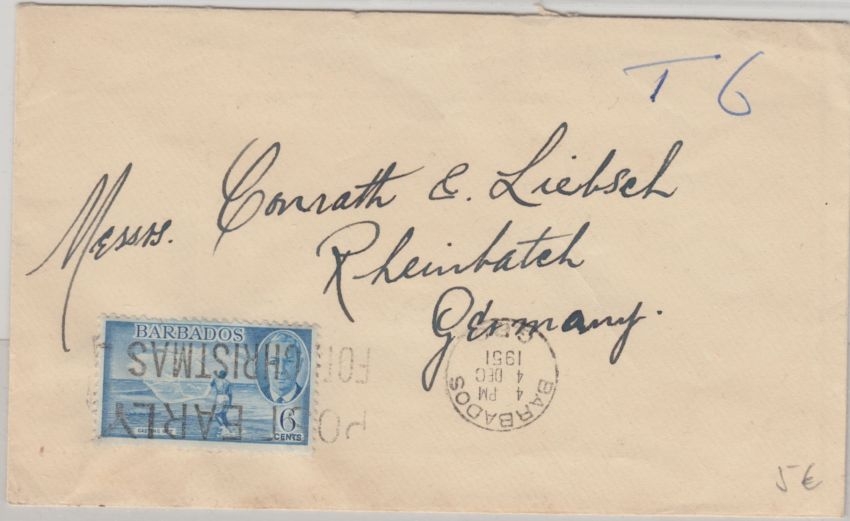 T 6
Messrs. Conrath E. Liebsch
Rheinbatch
Germany.
BARBADOS
6
CENTS
POST EARLY
FOR CHRISTMAS
BARBADOS
4 PM
4 DEC
1951
5 €